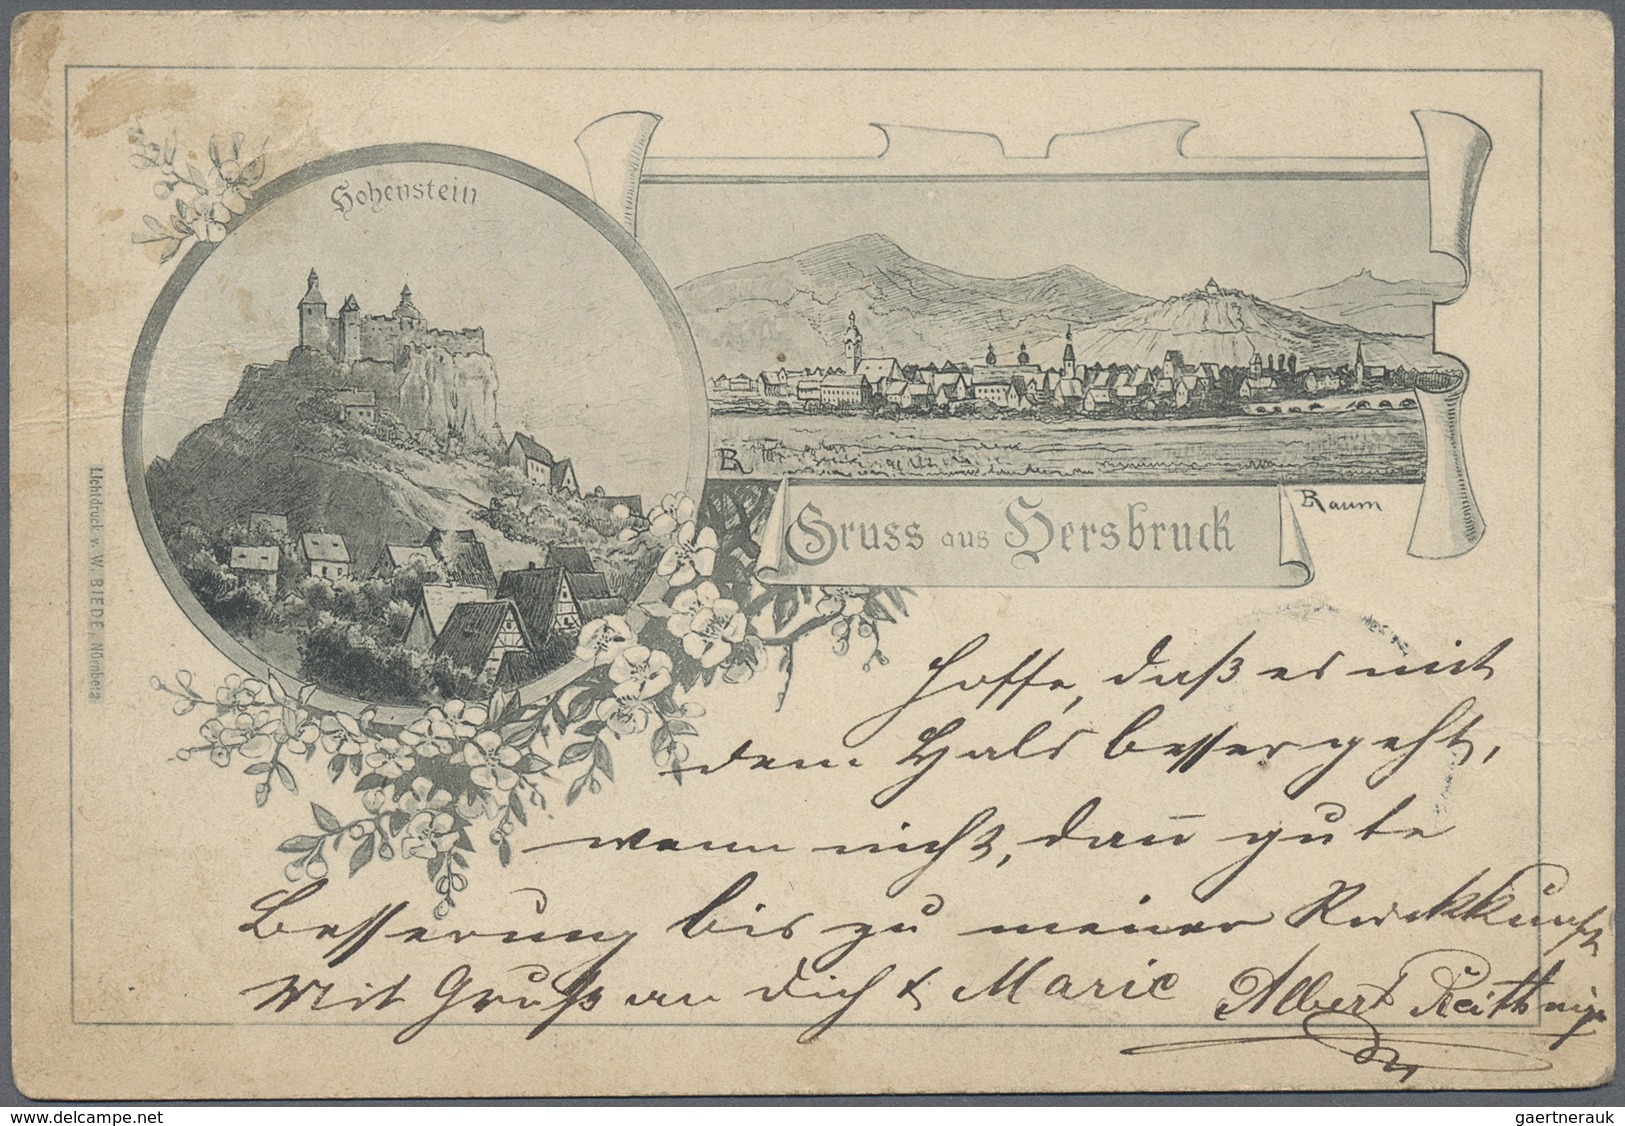 Hohenstein
BR
BRaum
Gruss aus Hersbruck
Lichtdruck v. W. BIEDE, Nürnberg
Hoffe, daß es mit
dem Hals besser geht,
wenn nicht, dan̄ gute
Besserung bis zu meiner Rückkunft
Mit Gruß an dich & Marie Albert
delcampe.net
gaertnerauk